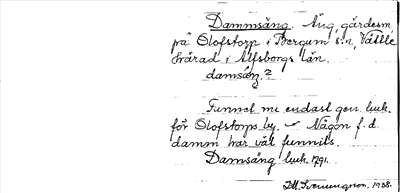 Dammsäng. Äng, gärdesm,
på Olofstorp i Bergum s:n, Vättle
härad i Älfsborgs län.
damsäŋ?
Funnet nu endast gen. luck.
för Olofstorps by. – Någon f. d.
damm har väl funnits.
Damsäng luck. 1791.
1938.